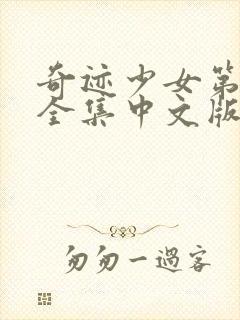 奇迹少女第
全集中文版
匆匆一過客